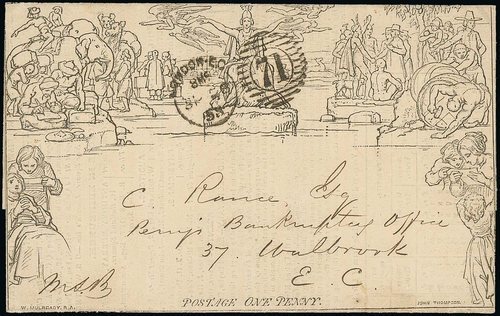 LONDON·E.C
71
C. Rance, Esq
Perry's Bankruptcy Office
37. Walbrook
E. C.
M.S.B
POSTAGE ONE PENNY.
W. MULREADY. R.A.
JOHN THOMPSON.